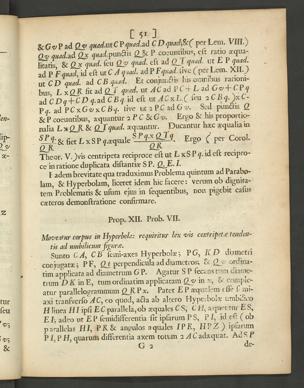 [ 51 ]
& GvP ad Qv quad. ut CP quad. ad CD quad. & (per Lem. VIII.)
Qv quad. ad Qx quad. punctis Q & P coeuntibus, est ratio æqua-
litatis, & Qx quad. seu Qv quad. est ad QT quad. ut EP quad.
ad PF quad, id est ut CA quad. ad PF quad. sive (per Lem. XII.)
ut CD quad. ad CB quad. Et conjunctis his omnibus rationi-
bus, L x QR fit ad QT quad. ut AC ad PC + L ad Gv + CPq
ad CDq + CDq. ad CBq. id est ut AC x L (seu 2CBq.) x C-
Pq. ad PC x Gv x CBq. sive ut 2 PC ad Gv. Sed punctis Q
& P coeuntibus, æquantur 2 PC & Gv. Ergo & his proportio-
nalia L x QR & QT quad. æquantur. Ducantur hæc æqualia in
SPq. / QR & fiet L x SPq. æquale SPq. x QTq. / QR Ergo (per Corol.
Theor. V.) vis centripeta reciproce est ut L x SPq. id est recipro-
ce in ratione duplicata distantiæ SP. Q. E. I.
Eadem brevitate qua traduximus Problema quintum ad Parabo-
lam, & Hyperbolam, liceret idem hic facere: verum ob dignita-
tem Problematis & usum ejus in sequentibus, non pigebit casus
cæteros demonstratione confirmare.
Prop. XII. Prob. VII.
Moveatur corpus in Hyperbola: requiritur lex vis centripetæ tenden-
tis ad umbilicum figuræ.
Sunto CA, CB semi-axes Hyperbolæ; PG, KD diametri
conjugatæ; PF, Qt perpendicula ad diametros; & Qv ordina-
tim applicata ad diametrum GP. Agatur SP secans tum diame-
trum DK in E, tum ordinatim applicatam Qv in x, & comple-
atur parallelogrammum QRPx. Patet EP æqualem esse semi-
axi transverso AC, eo quod, acta ab altero Hyperbolæ umbilico
H linea HI ipsi EC parallela, ob æquales CS, CH, æquentur ES,
EI; adeo ut EP semidifferentia sit ipsarum PS, PI, id est (ob
parallelas HI, PR & angulos æquales IPR, HPZ) ipsarum
PS, PH, quarum differentia axem totum 2 AC adæquat. Ad SP
G 2 de-